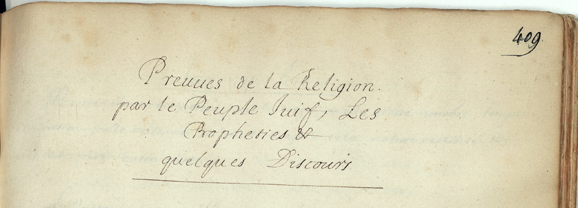 409.
Preuues de la Religion.
par le Peuple Juif, Les
Propheties &
quelques Discours